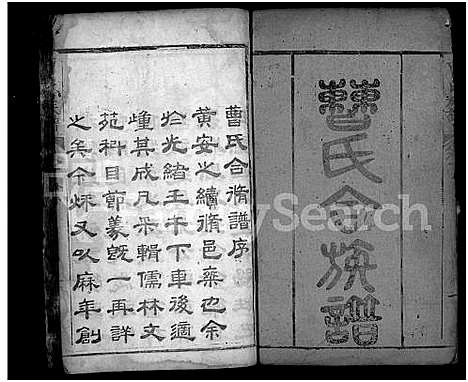 曹氏合族譜
曹氏合脩譜序
黃安之續脩邑乗也余
於光緒壬午下車後適
㠉其成凡采輯儒林文
苑科目節義旣一再詳
之矣今秌又以麻年創
FamilySearch